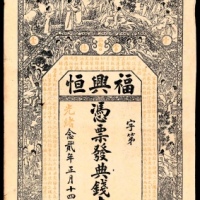 福興恒
字第
憑票發典錢
念貳年正月十四